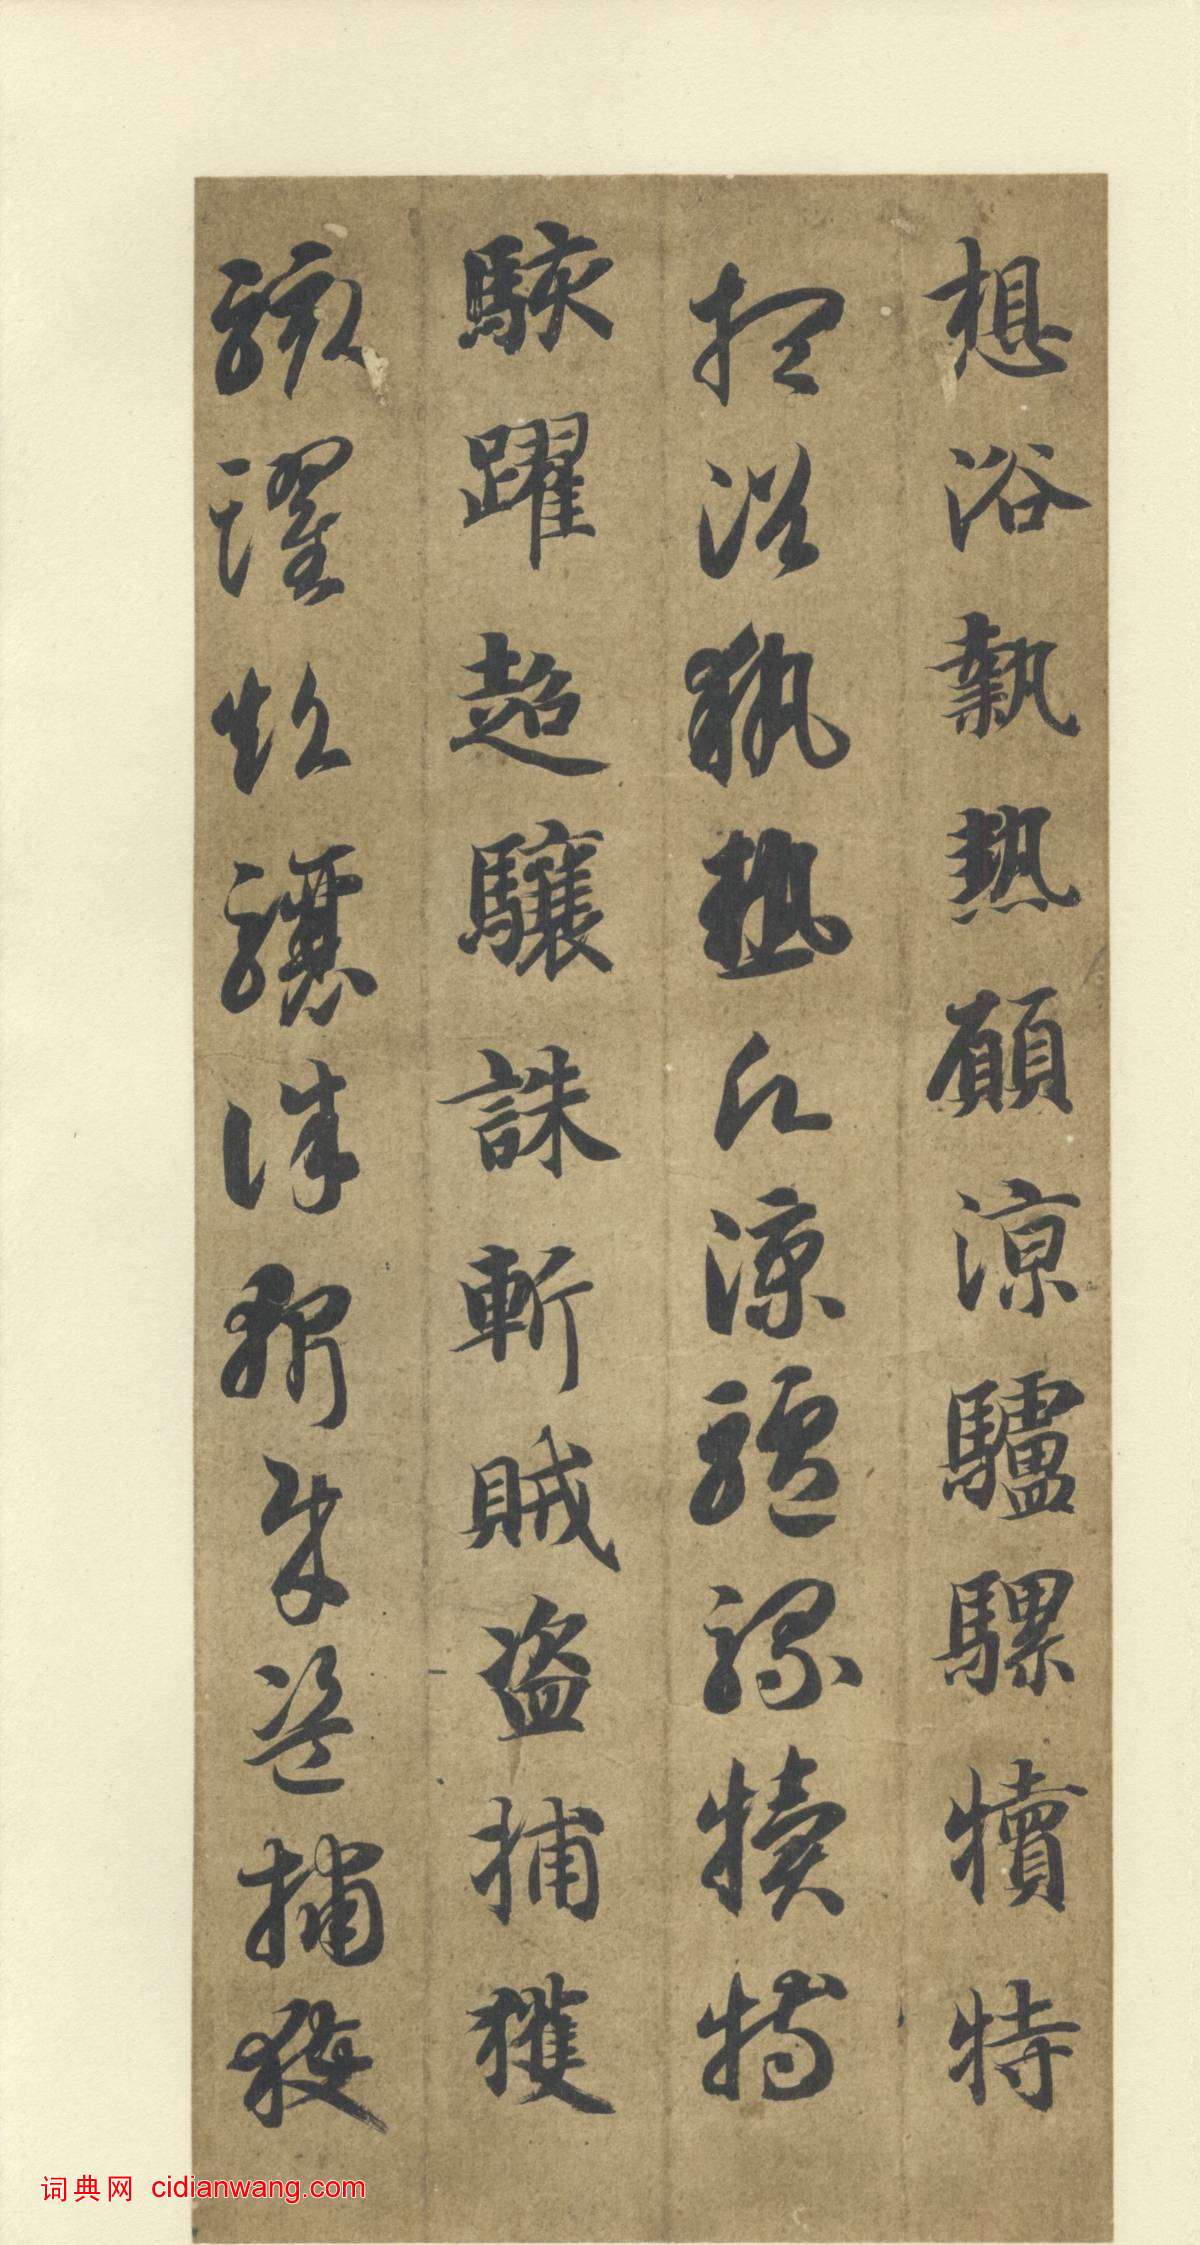 想浴執熱願涼驢騾犢特
想浴執熱願涼驢騾犢特
駭躍超驤誅斬賊盜捕獲
駭躍超驤誅斬賊盜捕獲
词典网 cidianwang.com